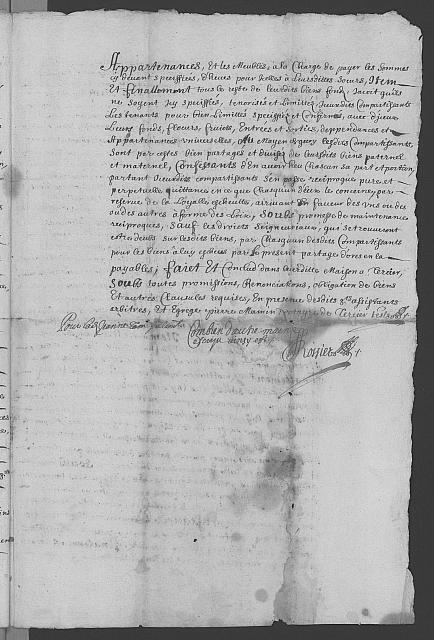 Appartenances, Et les Meubles, a la Charge de payer les Sommes
cy devant speciffiées, d'heues pour Icelles a leursdittes Soeurs, Item
Et finallement tous le reste de leursdits biens fond, Jacoit qu'ils
ne Soyent Icy speciffies, tenorisés et Limittés, lesdits Compartissants
Les tenants pour bien Limittés speciffiés et Confirmés, avec
Leurs fonds, fleurs, fruits, Entrées et Sorties, deppendances et
Appartenances vniuerselles, Au Moyen de quoy Lesdits Compartissants,
Sont par ensemble bien partagés et divisés de leursdits biens paternel
et maternel, Confessants d'En avoir heu Chascun sa part et portion,
partant Iceux dits compartissants S'en passe reciproque pure, et
perpetuelle quittance en ce que Chasquun d'eux le concerne, par
reserve de la Loyalle escheutte, arrivant En faveur des vns ou des
oudes autres a forme des Loix, Soubs promesse de maintenance
reciproques, Sauf les droits Seigneuriaux, qui se trouveront
estre deus sur lesdits biens, par Chasquun desdits Compartissants
pour les biens a luy escheus par le present partage dores en la
payables; faict Et Conclud dans la ditte Maison a Tercier,
Soubs toutes promissions, Renonciations, obligation de biens
Et autres Clausules requises, En presence desdits assistants
arbitres, et Egrege pierre Mamin Tercier
Pour laditte Jeanne Combien d'autre main
escript ainsy est
Rossier